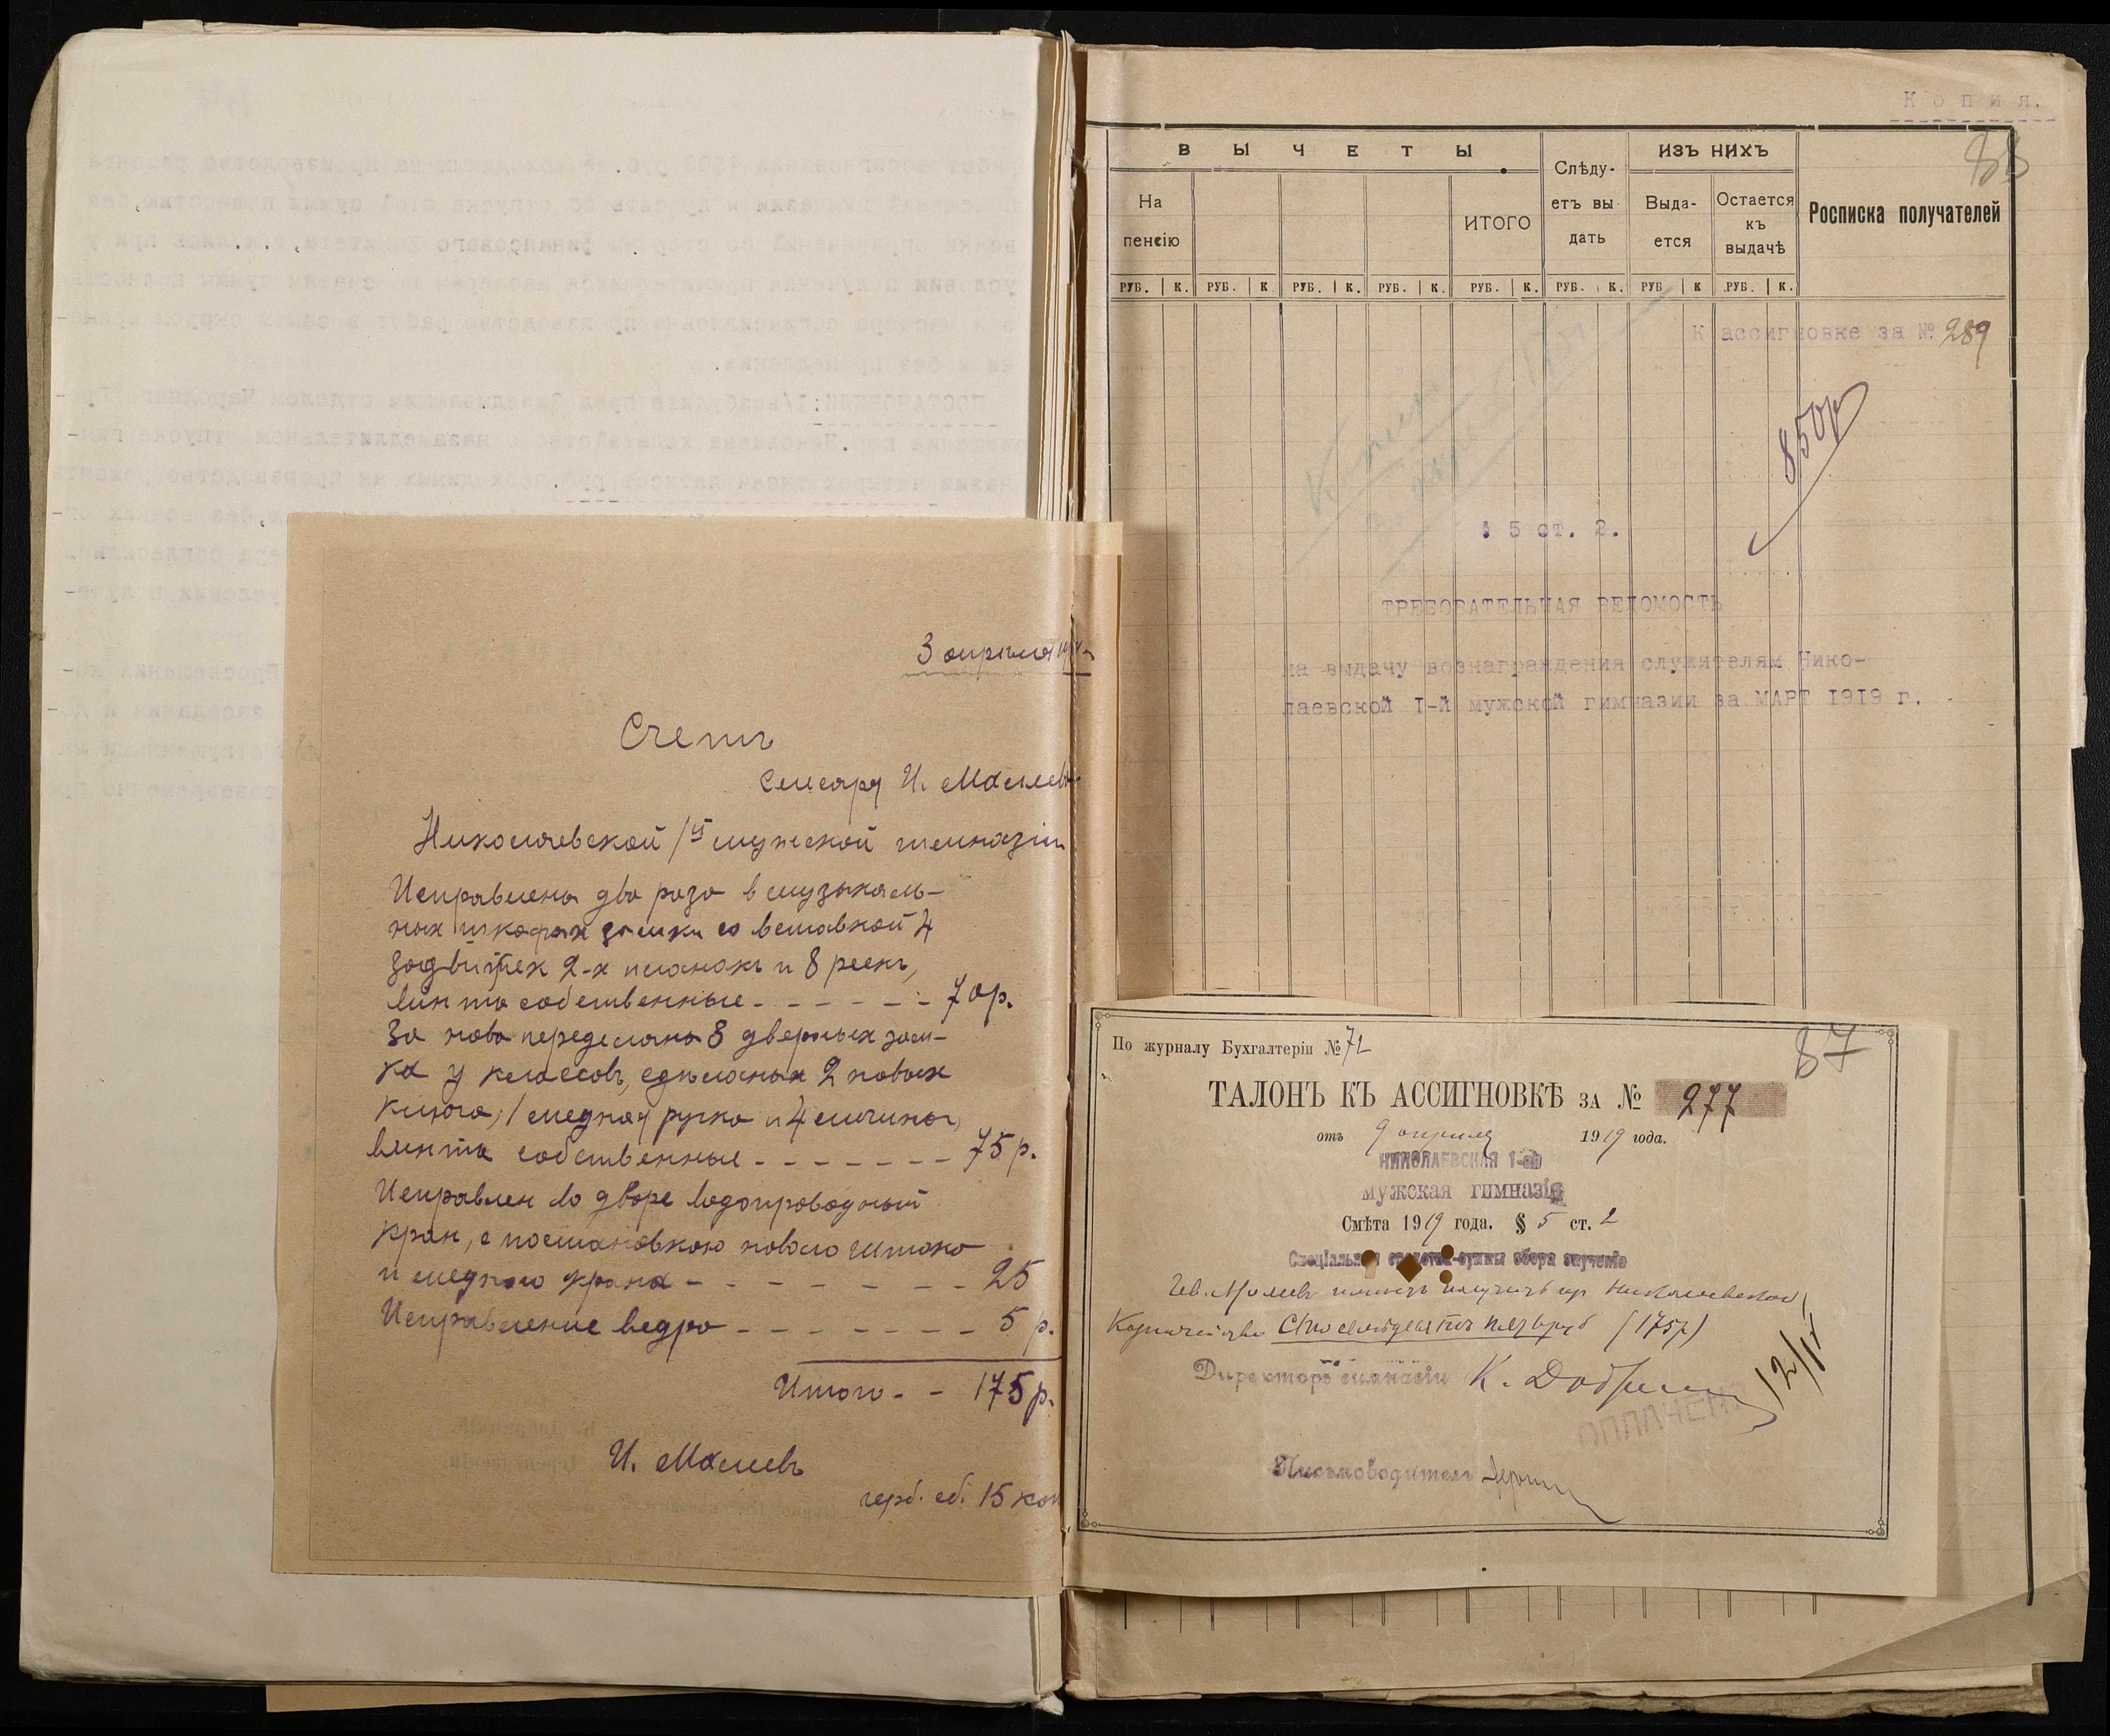 3 апреля
Счетъ
Слесаря И. Малевъ
Николаевской 1й мужской гимназіи
Исправлена два раза в музыкаль-
ных шкафах замки со вставкой 4
задвижек 2-х планокъ и 8 реекъ,
винта собственные - - - - - - 70р.
За ново переделано 8 дверных зам-
ка у классовъ, сделаных 2 новых
ключа, 1 медная ручка и 4 личины,
винта собственные - - - - - - - 75 р.
Исправлен во дворе водопроводный
кран, с постановкою нового штока
и медного крана - - - - - - - 25
Исправление ведро - - - - - - - 5 р.
Итого - - 175 р.
И. Малевъ
герб. сб. 15 коп
Копия.
88
ВЫЧЕТЫ
Слѣду-
етъ вы
дать
ИЗЪ НИХЪ
Росписка получателей
На
пенсію
ИТОГО
Выда-
ется
Остается
къ
выдачѣ
РУБ. К. РУБ. К РУБ. К. РУБ. К. РУБ. К. РУБ. К. РУБ К РУБ. К.
К ассигновке за № 289
850р
§ 5 ст. 2.
ТРЕБОВАТЕЛЬНАЯ ВЕДОМОСТЬ
на выдачу вознаграждения служителям Нико-
лаевской I-й мужской гимназии за МАРТ 1919 г.
87
По журналу Бухгалтеріи № 72
ТАЛОНЪ КЪ АССИГНОВКѢ ЗА № 277
отъ 9 апреля 1919 года.
НИКОЛАЕВСКАЯ 1-ая
мужская гимназія
Смѣта 1919 года. § 5 ст. 2
Спеціальныя средства-суммы сбора за ученіе
Ив. Малевъ имѣетъ получить из Николаевскаго
Казначейства Сто семьдесятъ пять руб (175р)
Директоръ гимназіи К. Доб
12/IV
ОПЛАЧЕНО
Письмоводитель